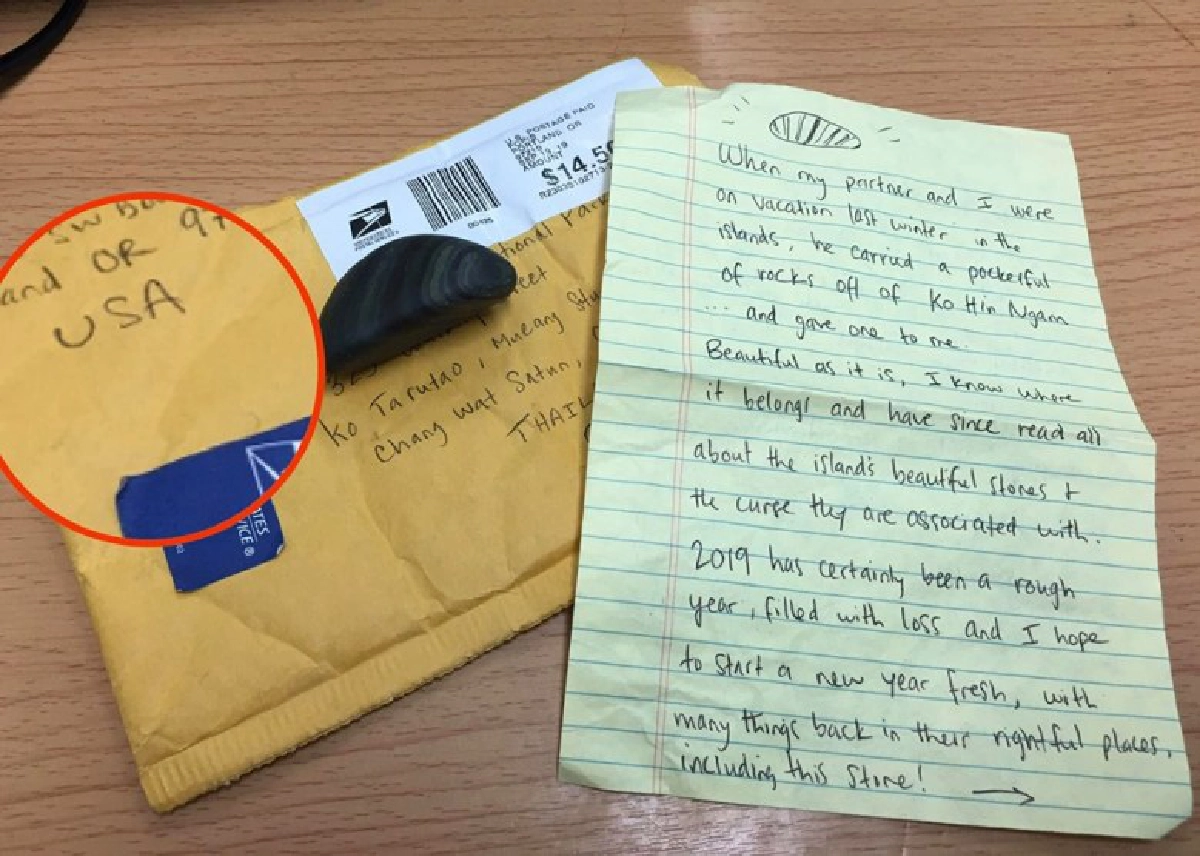 SW
and OR 97
USA
ATES
VICE ®
U.S. POSTAGE PAID
PORTLAND, OR
AMOUNT
$14.50
UNITED STATES
POSTAL SERVICE
tional Park
eet
Ko Tarutao, Mueang
Chang wat Satun,
THAIL
When my partner and I were
on vacation last winter in the
islands, he carried a pocketful
of rocks off of Ko Hin Ngam
... and gave one to me.
Beautiful as it is, I know where
it belongs and have since read all
about the island's beautiful stones +
the curse they are associated with.
2019 has certainly been a rough
year, filled with loss and I hope
to start a new year fresh, with
many things back in their rightful places,
including this stone! →